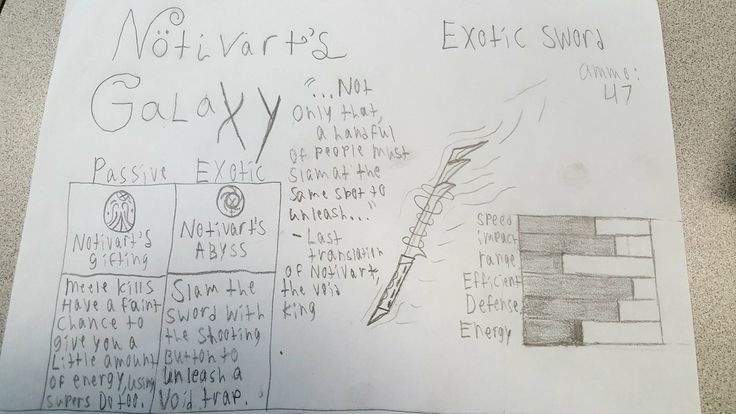 Nötivart's
Galaxy
Exotic sword
ammo:
47
"...Not
only that,
a handful
of people must
slam at the
same spot to
unleash..."
- Last
translation
of Notivart,
the void
king
Passive
Exotic
Notivart's
gifting
Meele kills
Have a faint
Chance to
give you a
Little amount
of energy, using
supers Do too.
Notivart's
Abyss
Slam the
sword with
the shooting
Button to
unleash a
Void trap.
Speed
impact
range
Efficient
Defense
Energy